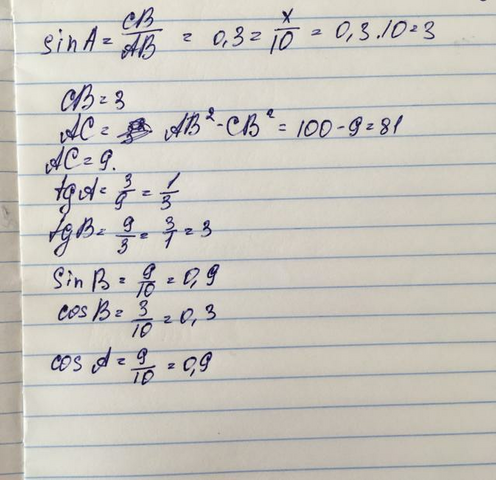 sin A = CB/AB = 0,3 = x/10 = 0,3 · 10 = 3
CB = 3
AC = AB² - CB² = 100 - 9 = 81
AC = 9.
tg A = 3/9 = 1/3
tg B = 9/3 = 3/1 = 3
Sin B = 9/10 = 0,9
cos B = 3/10 = 0,3
cos A = 9/10 = 0,9